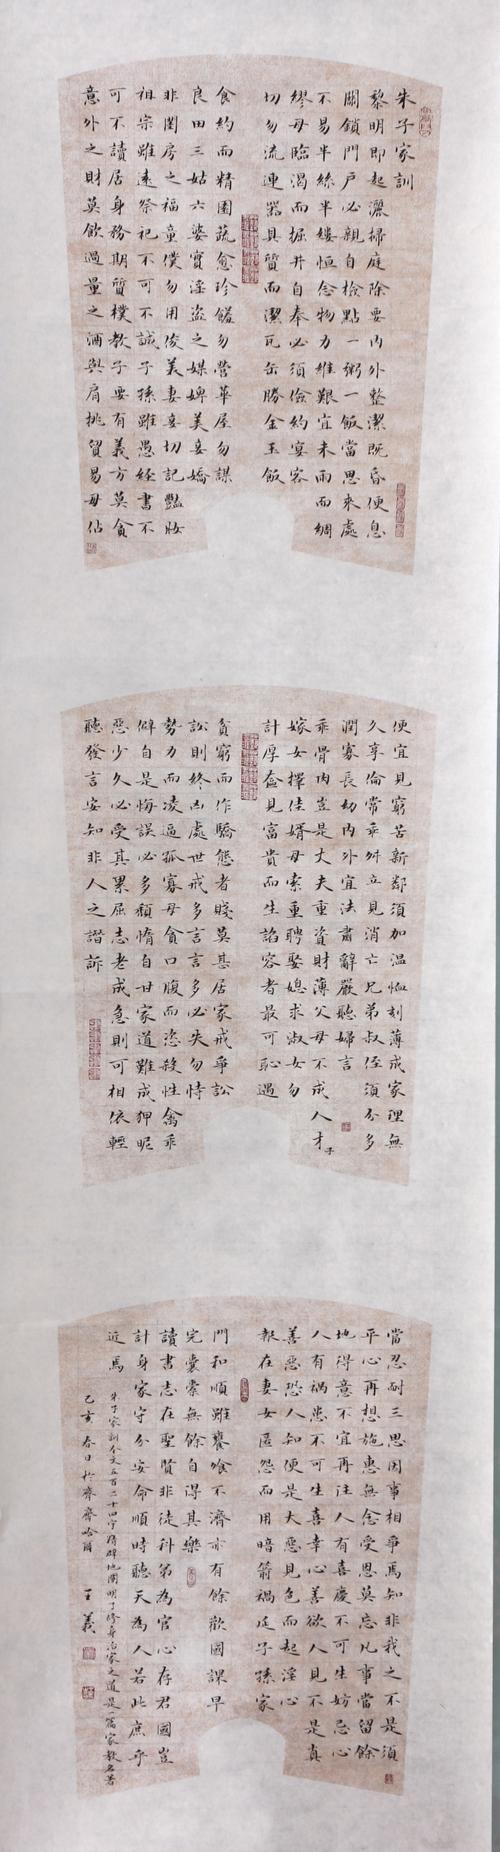 朱子家訓
黎明即起灑掃庭除要內外整潔既昏便息
關鎖門戶必親自檢點一粥一飯當思來處
不易半絲半縷恒念物力維艱宜未雨而綢
繆毋臨渴而掘井自奉必須儉約宴客
切勿流連器具質而潔瓦缶勝金玉飯
食約而精園蔬愈珍饈勿營華屋勿謀
良田三姑六婆實淫盜之媒婢美妾嬌
非閨房之福童僕勿用俊美妻妾切記豔妝
祖宗雖遠祭祀不可不誠子孫雖愚經書不
可不讀居身務期質樸教子要有義方莫貪
意外之財莫飲過量之酒與肩挑貿易毋佔
便宜見窮苦新鄰須加温恤刻薄成家理無
久享倫常乖舛立見消亡兄弟叔侄須分多
潤寡長幼內外宜法肅辭嚴聽婦言
乖骨肉豈是丈夫重資財薄父母不成人才子
嫁女擇佳婿毋索重聘娶媳求淑女勿
計厚奩見富貴而生諂容者最可恥遇
貧窮而作驕態者賤莫甚居家戒爭訟
訟則終凶處世戒多言言多必失勿恃
勢力而凌逼孤寡毋貪口腹而恣殺牲禽乖
僻自是悔誤必多頹惰自甘家道難成狎昵
惡少久必受其累屈志老成急則可相依輕
聽發言安知非人之譖訴
當忍耐三思因事相爭焉知非我之不是須
平心再想施惠無念受恩莫忘凡事當留餘
地得意不宜再往人有喜慶不可生妨忌心
人有禍患不可生喜幸心善欲人見不是真
善惡恐人知便是大惡見色而起淫心
報在妻女匿怨而用暗箭禍延子孫家
門和順雖饔飧不濟亦有餘歡國課早
完囊橐無餘自得其樂
讀書志在聖賢非徒科第為官心存君國豈
計身家守分安命順時聽天為人若此庶乎
近焉
朱子家訓全文五百二十四字精闢地闡明了修身治家之道是一篇家教名著
乙亥春日於齊齊哈爾 王義